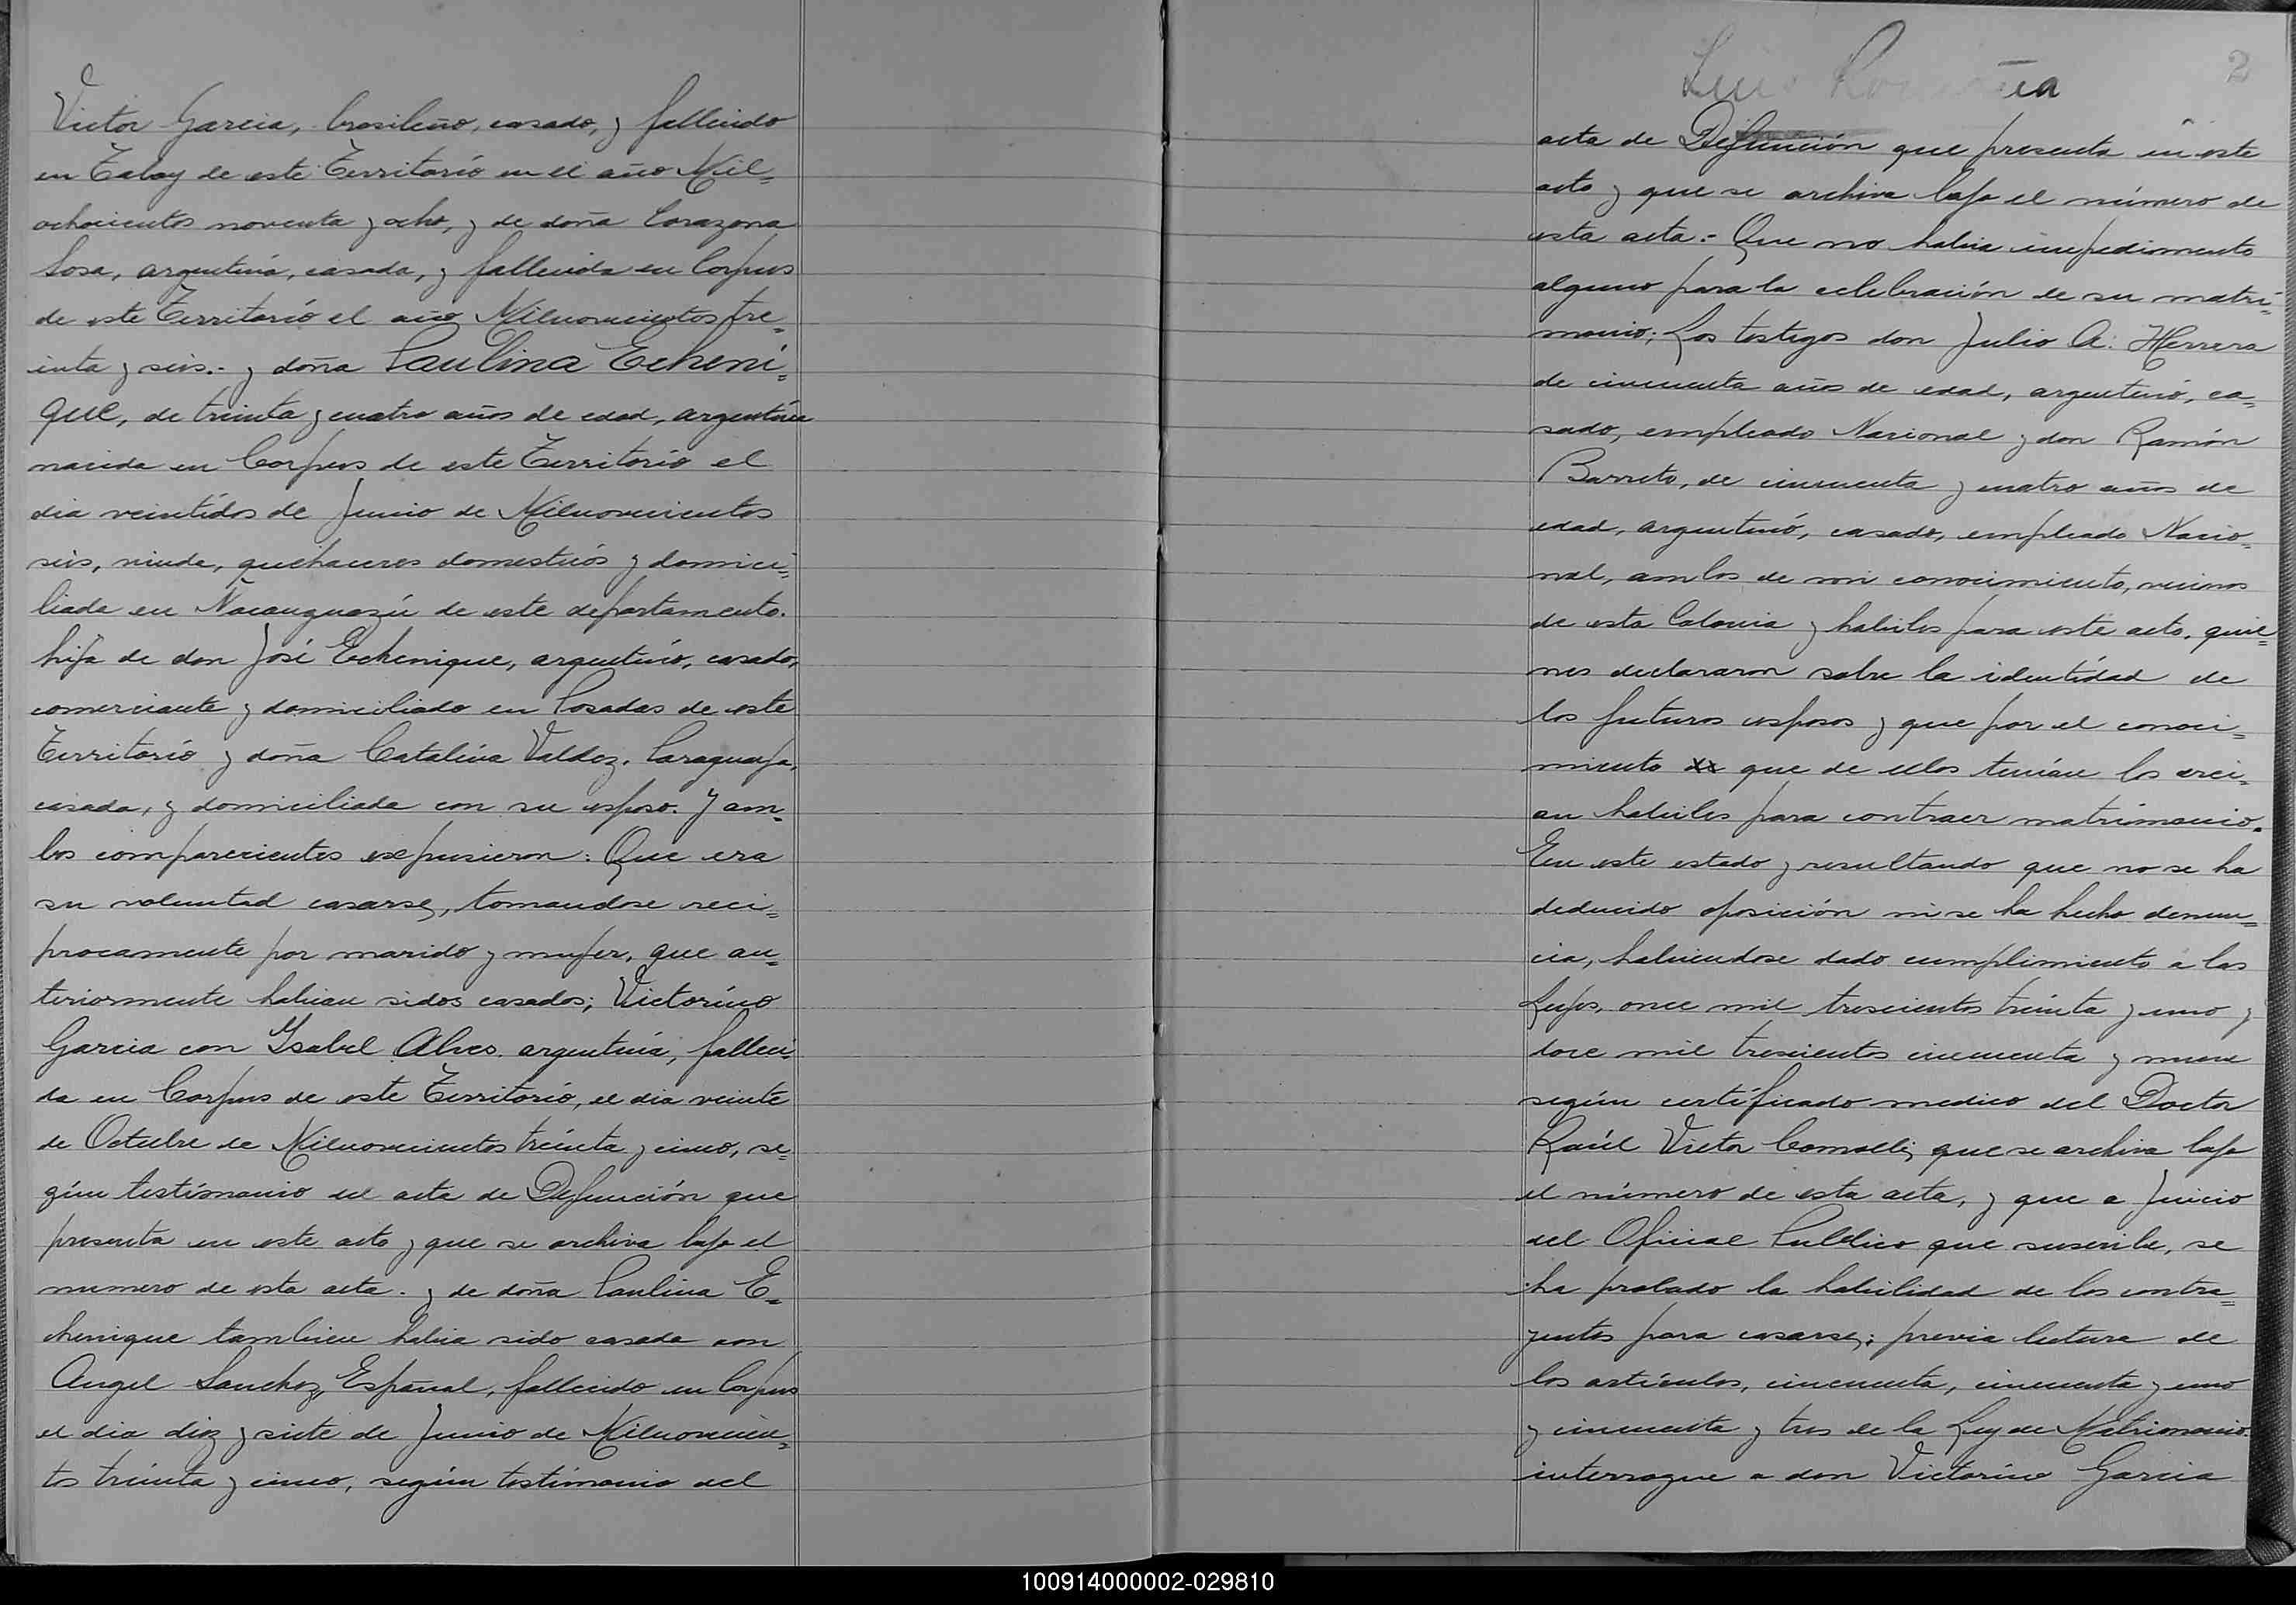 Victor Garcia, brasileño, casado, y fallecido
en Tabay de este Territorio en el año Mil=
ochocientos noventa y ocho, y de doña Corazona
Sosa, argentina, casada, y fallecida en Corpus
de este Territorio el año Milnovecientos tre=
inta y seis.- y doña Paulina Echeni=
que, de treinta y cuatro años de edad, argentina
nacida en Corpus de este Territorio el
dia veintidos de Junio de Milnovecientos
seis, viuda, quehaceres domesticos y domici=
liada en Ñacanguazú de este departamento.
hija de don José Echenique, argentino, casado,
comerciante y domiciliado en Posadas de este
Territorio y doña Catalina Valdez, Paraguaya,
casada, y domiciliada con su esposo. Y am=
bos comparecientes expusieron: Que era
su voluntad casarse, tomandose reci=
procamente por marido y mujer, que an=
teriormente habian sidos casados; Victorino
Garcia con Ysabel Alves, argentina, falleci=
da en Corpus de este Territorio, el dia veinte
de Octubre de Milnovecientos treinta y cinco, se=
gún testimonio del acta de Defunción que
presenta en este acto y que se archiva bajo el
numero de esta acta. y de doña Paulina E=
chenique tambien habia sido casada con
Angel Sanchez, Español, fallecido en Corpus
el dia diez y siete de Junio de Milnovecien=
tos treinta y cinco, según testimonio del
2
Luis
acta de Defunción que presenta en este
acto y que se archiva bajo el número de
esta acta.- Que no habia impedimento
alguno para la celebración de su matri=
monio; Los testigos don Julio A. Herrera
de cincuenta años de edad, argentino, ca=
sado, empleado Nacional y don Ramón
Barreto, de cincuenta y cuatro años de
edad, argentino, casado, empleado Nacio=
nal, ambos de mi conocimiento, vecinos
de esta Colonia y habiles para este acto, quie=
nes declararon sobre la identidad de
los futuros esposos y que por el conoci=
miento que de ellos tenian los crei=
an habiles para contraer matrimonio.
En este estado y resultando que no se ha
deducido oposición ni se ha hecho denun=
cia, habiendose dado cumplimiento a las
Leyes, once mil trescientos treinta y uno y
doce mil trescientos cincuenta y nueve
según certificado medico del Doctor
Raúl Victor Comolli, que se archiva bajo
el número de esta acta, y que a Juicio
del Oficial Publico que suscribe, se
ha probado la habilidad de los contra=
yentes para casarse; previa lectura de
los articulos, cincuenta, cincuenta y uno
y cincuenta y tres de la Ley de Matrimonio
interrogue a don Victorino Garcia
100914000002-029810